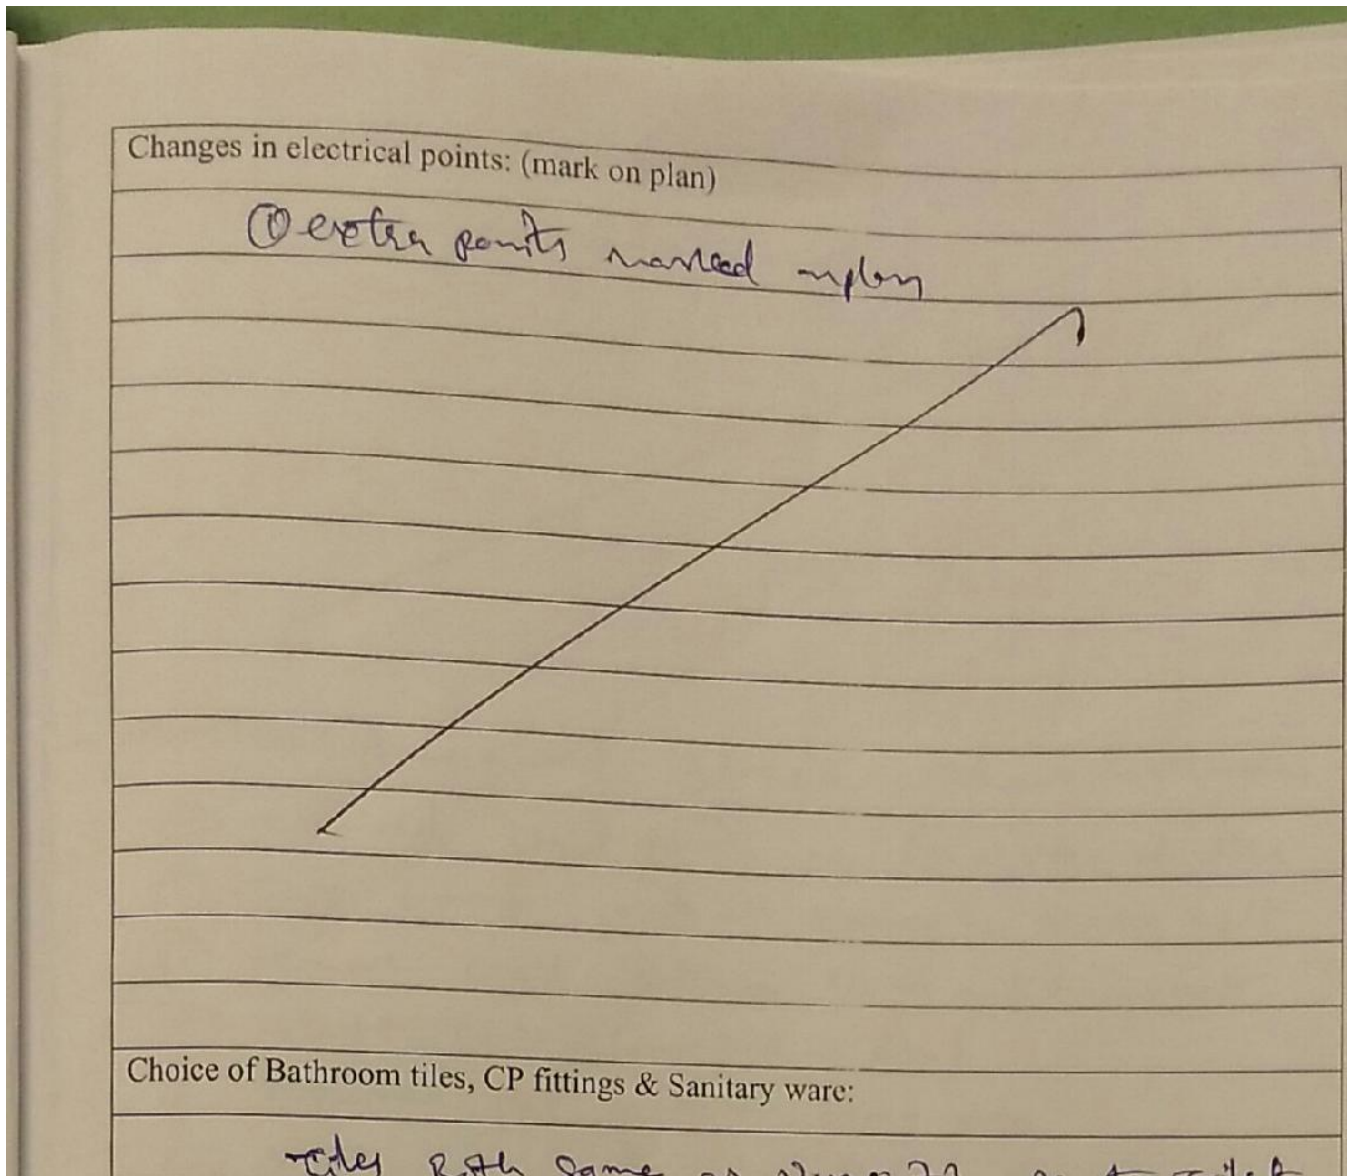 Changes in electrical points: (mark on plan)
① extra points marked in plan
Choice of Bathroom tiles, CP fittings & Sanitary ware:
Tiles Both same as